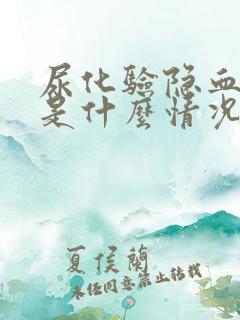 尿化验隐血
是什麼情况
夏侯蘭
未经同意禁止转载